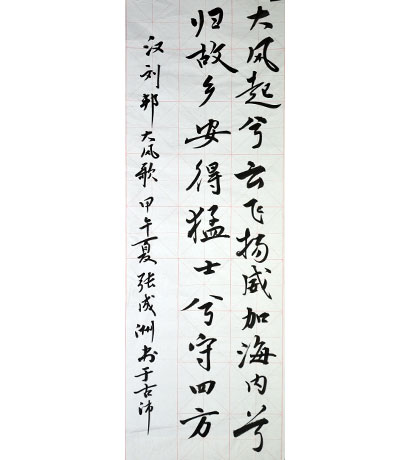 大风起兮云飞扬威加海内兮
归故乡安得猛士兮守四方
汉刘邦大风歌甲午夏张成洲书于古沛